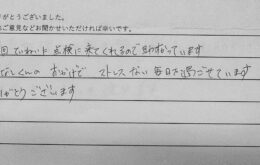 がとうございました。
ご意見などお聞かせいただければ幸いです。
回ていねいに点検に来てくれるので助かっています
なしくんのおかげでストレスない毎日を過ごせています
がとうございます